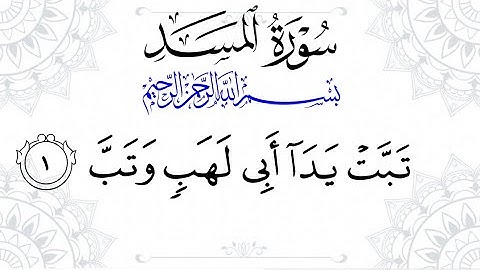 سُورَةُ المَسَدِ
بِسْمِ اللَّهِ الرَّحْمَٰنِ الرَّحِيمِ
تَبَّتۡ يَدَآ أَبِي لَهَبٖ وَتَبَّ ١